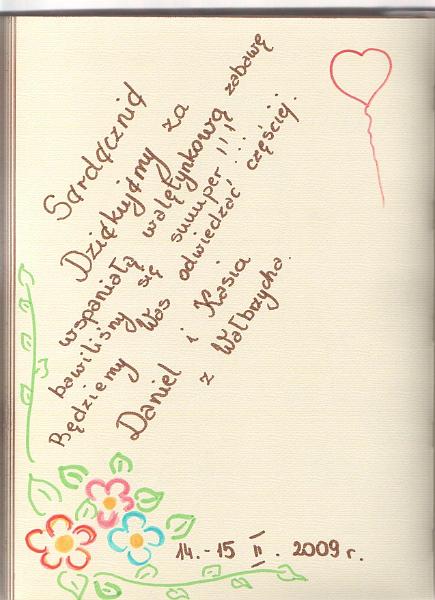 Serdecznie
Dziękujemy za
wspaniałą walętynkową zabawę
bawiliśmy się suuuper!!!
Będziemy Was odwiedzać częściej.
Daniel i Kasia
z Wałbrzycha.
14.-15 II. 2009 r.